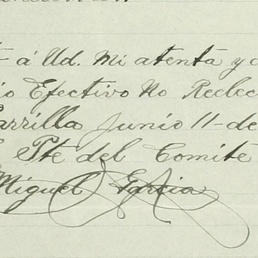 á Ud. mi atenta y
Efectivo No Reelec
Parrilla Junio 11 de
Pte del Comite
Miguel Garcia